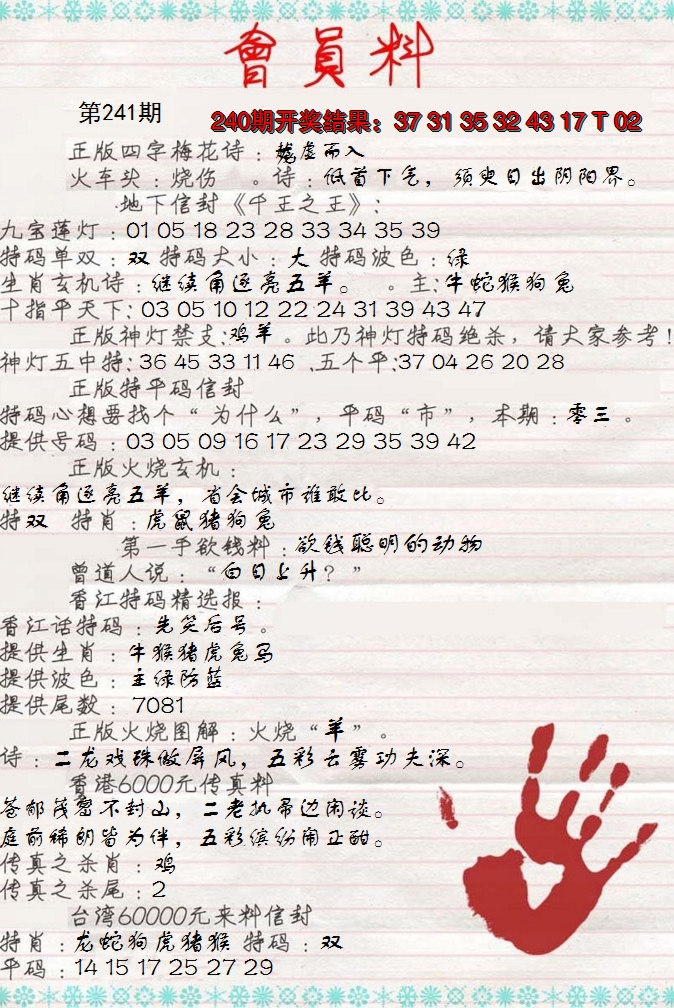 會員料
第241期
240期开奖结果：37 31 35 32 43 17 T 02
正版四字梅花诗：趁虚而入
火车头：烧伤 。诗：低首下气，须臾日出阴阳界。
地下信封《千王之王》：
九宝莲灯：01 05 18 23 28 33 34 35 39
特码单双：双 特码大小：大 特码波色：绿
生肖玄机诗：继续角逐亮五羊。 。主：牛蛇猴狗兔
十指平天下：03 05 10 12 22 24 31 39 43 47
正版神灯禁支：鸡羊。此乃神灯特码绝杀，请大家参考！
神灯五中特：36 45 33 11 46 、五个平：37 04 26 20 28
正版特平码信封
特码心想要找个“为什么”，平码“市”，本期：零三。
提供号码：03 05 09 16 17 23 29 35 39 42
正版火烧玄机：
继续角逐亮五羊，省会城市谁敢比。
特双 特肖：虎鼠猪狗兔
第一手欲钱料：欲钱聪明的动物
曾道人说：“白日上升？”
香江特码精选报：
香江话特码：先笑后号。
提供生肖：牛猴猪虎兔马
提供波色：主绿防蓝
提供尾数：7081
正版火烧图解：火烧“羊”。
诗：二龙戏珠做屏风，五彩云雾功夫深。
香港6000元传真料
苍郁茂密不封山，二老机帚边闲谈。
庭前稀朗皆为伴，五彩缤纷闹正酣。
传真之杀肖：鸡
传真之杀尾：2
台湾60000元来料信封
特肖：龙蛇狗虎猪猴 特码：双
平码：14 15 17 25 27 29